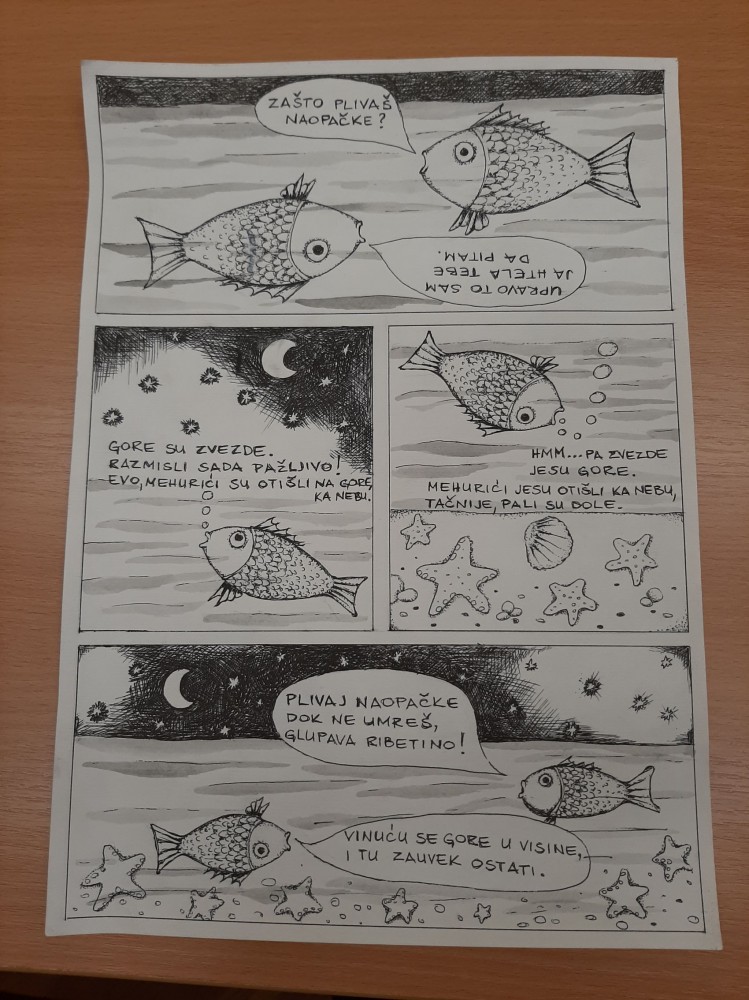 ZAŠTO PLIVAŠ
NAOPAČKE?
UPRAVO TO SAM
JA HTELA TEBE
DA PITAM.
GORE SU ZVEZDE.
RAZMISLI SADA PAŽLJIVO!
EVO, MEHURIĆI SU OTIŠLI NA GORE,
KA NEBU.
HMM...PA ZVEZDE
JESU GORE.
MEHURIĆI JESU OTIŠLI KA NEBU,
TAČNIJE, PALI SU DOLE.
PLIVAJ NAOPAČKE
DOK NE UMREŠ,
GLUPAVA RIBETINO!
VINUĆU SE GORE U VISINE,
I TU ZAUVEK OSTATI.